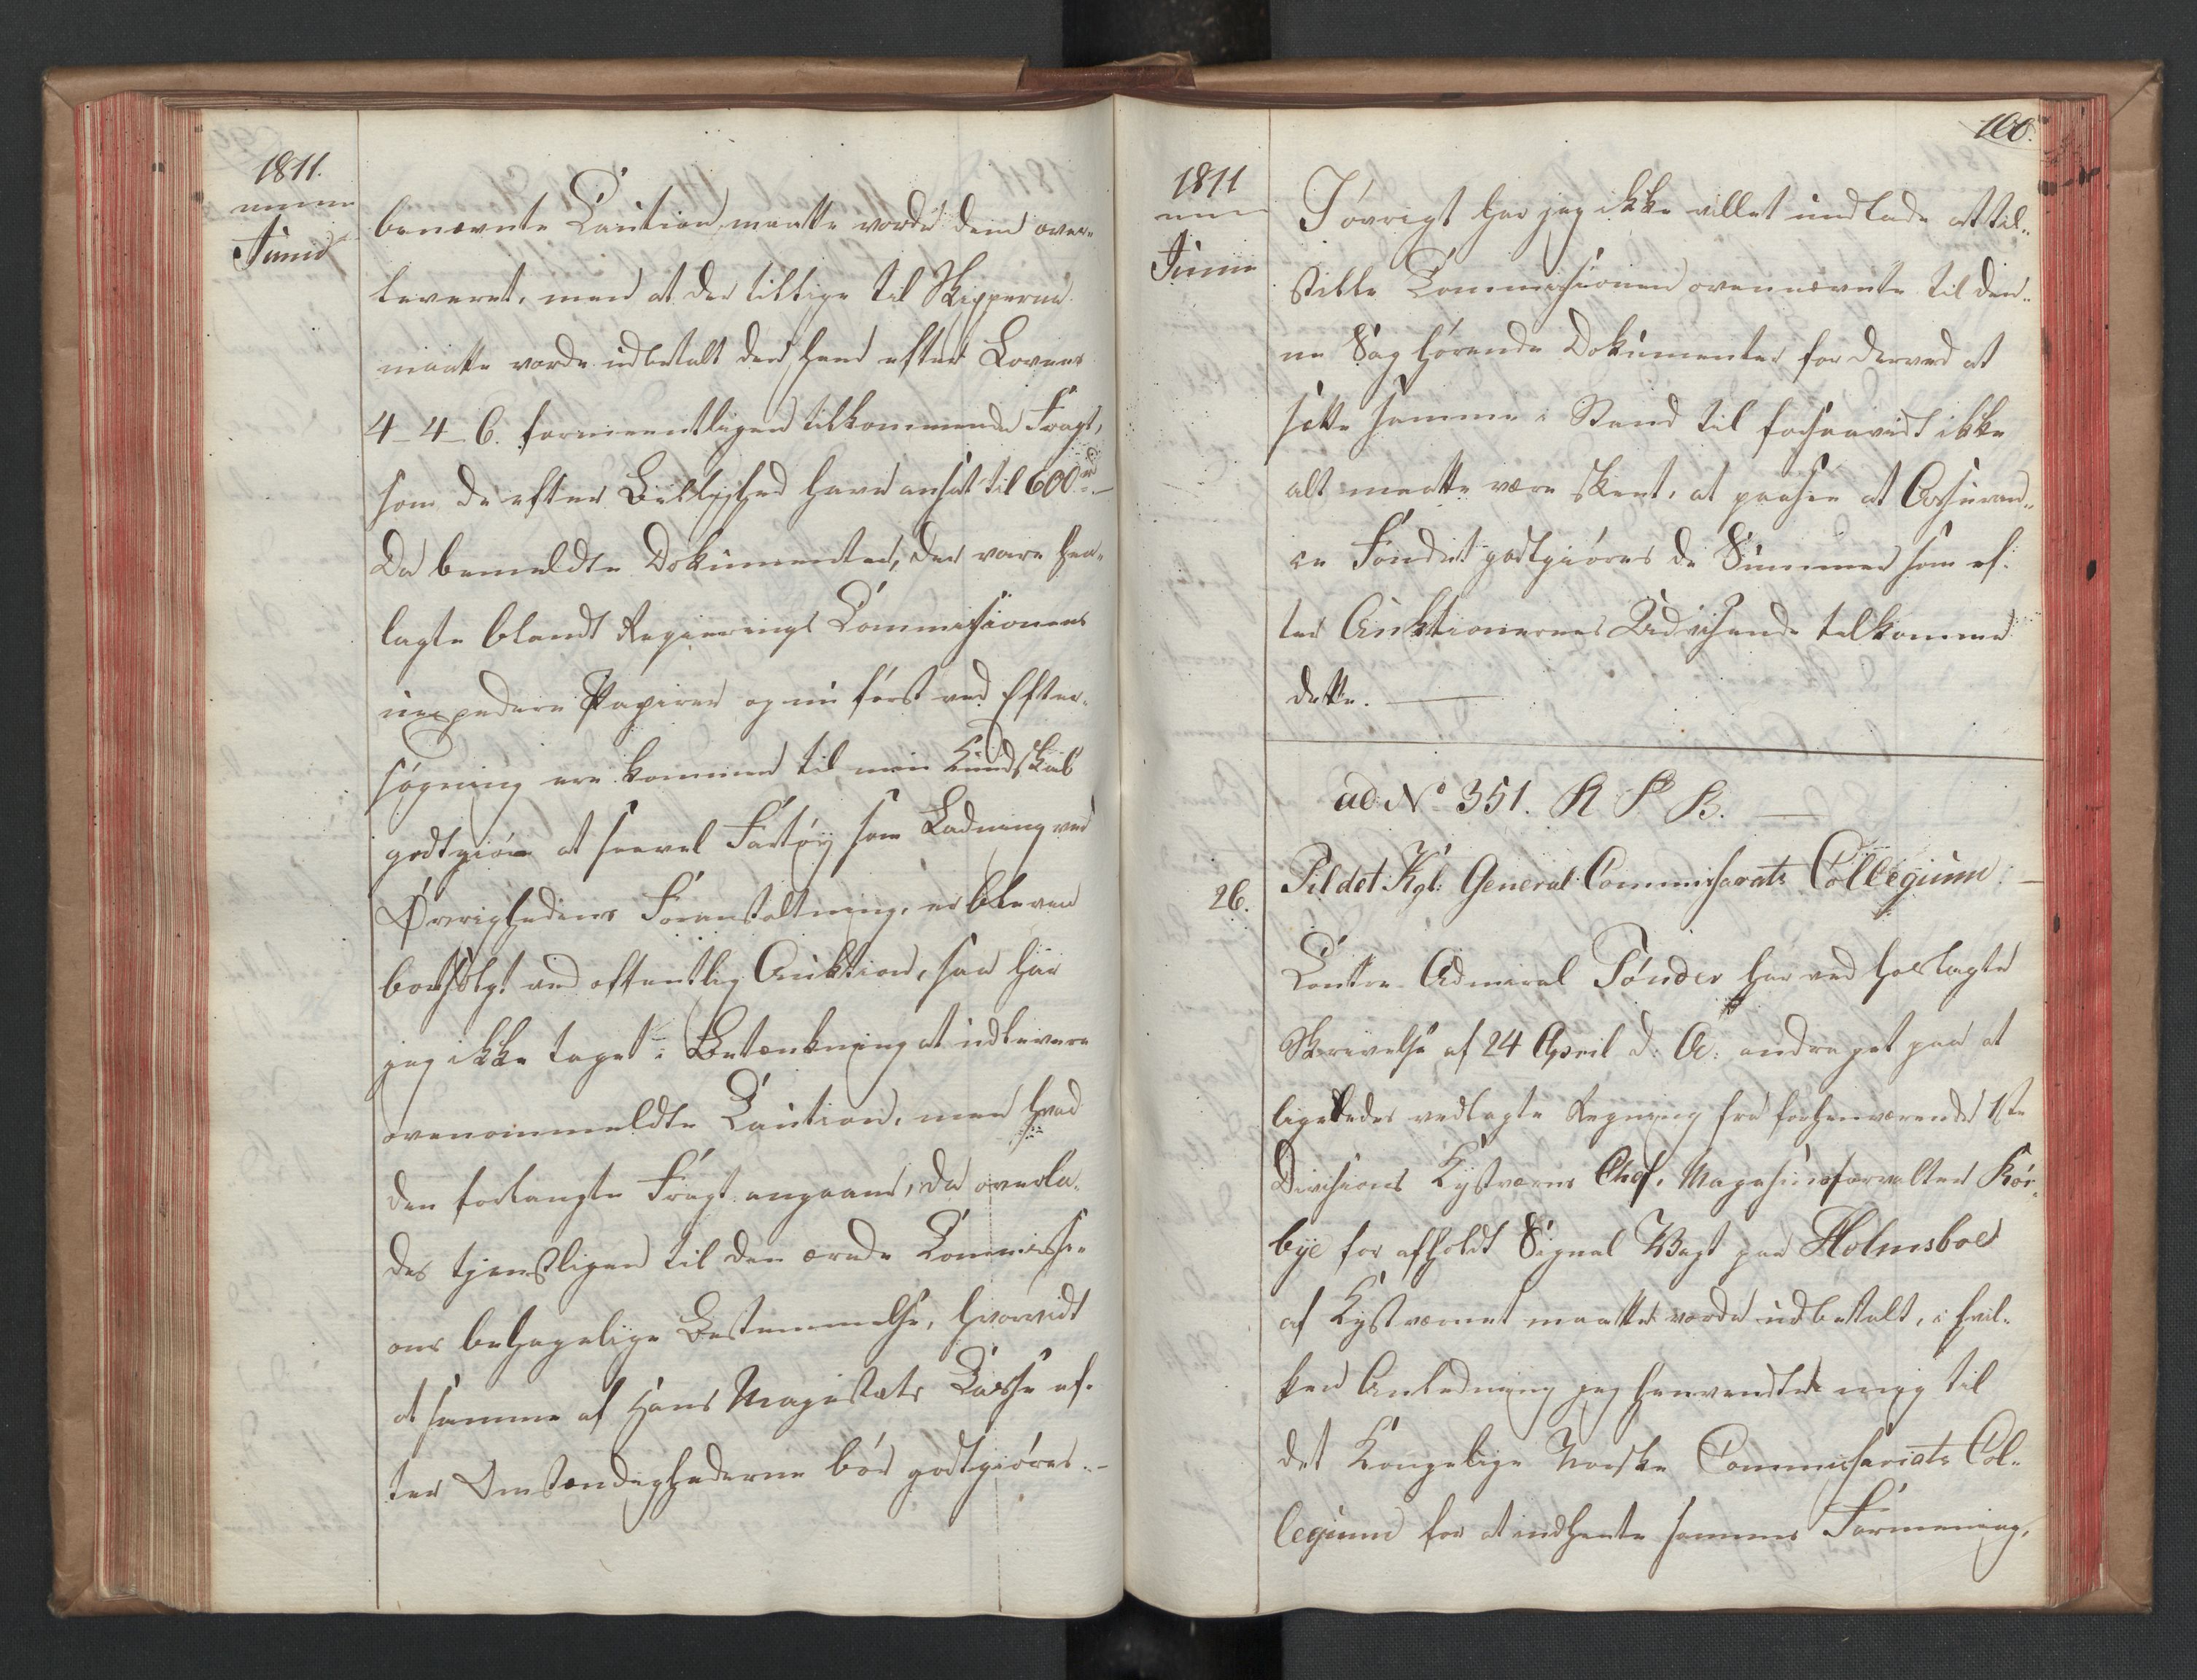 1811.
Junii
benævnte Caution maatte vorde dem over-
leveret, men at der tillige til Skipperne
maatte vorde udbetalt den ham efter Lovens
4-4-6. formeentligen tilkommende Fragt,
som de efter Billighed have ansat til 600 rd
Da bemeldte Dokumenter, der vare hen-
lagte blandt Regierings Commissionens
uexpederte Papirer og nu først ved Efter-
søgning ere kommen til min Kundskab
godtgiør at saavel Fartøy som Ladning ved
Øvrighedens Foranstaltning, er bleven
bortsolgt ved offentlig Auktion, saa har
jeg ikke taget i Betænkning at udlevere
ovenommeldte Caution, men hvad
den forlangte Fragt angaaer, da overla-
des tjenstligen til den ærede Commissi-
ons behagelige Bestemmelse, hvorvidt
at samme af Hans Majestæts Casse ef-
ter Omstændighederne bør godtgiøres.-
100.
1811
Junii
I øvrigt har jeg ikke villet undlade at til-
stille Commissionen ovennævnte til den-
ne Sag hørende Dokumenter for derved at
sætte samme i Stand til forsaavidt ikke
alt maatte være skeet, at paasee at Assuran-
ce Fondet godtgiøres de Summer som ef-
ter Auktionernes Udvisende tilkomme
dette.
ad No 351. R P B.
26.
Til det Kgl. General Commissariats Collegium.
Contre Admiral Tønder har ved hoslagte
Skrivelse af 24 April d. A. andraget paa at
ligeledes vedlagte Regning fra forhenværende 1ste
Divisions Kystværns Chef, Magasinforvalter Kør-
bye for afholdt Signal Vagt paa Holmsboe
af Kystværnet maatte vorde udbetalt, i hvil-
ken Anledning jeg henvendte mig til
det Kongelige Norske Commissariats Col-
legium for at indhente sammes Formening,